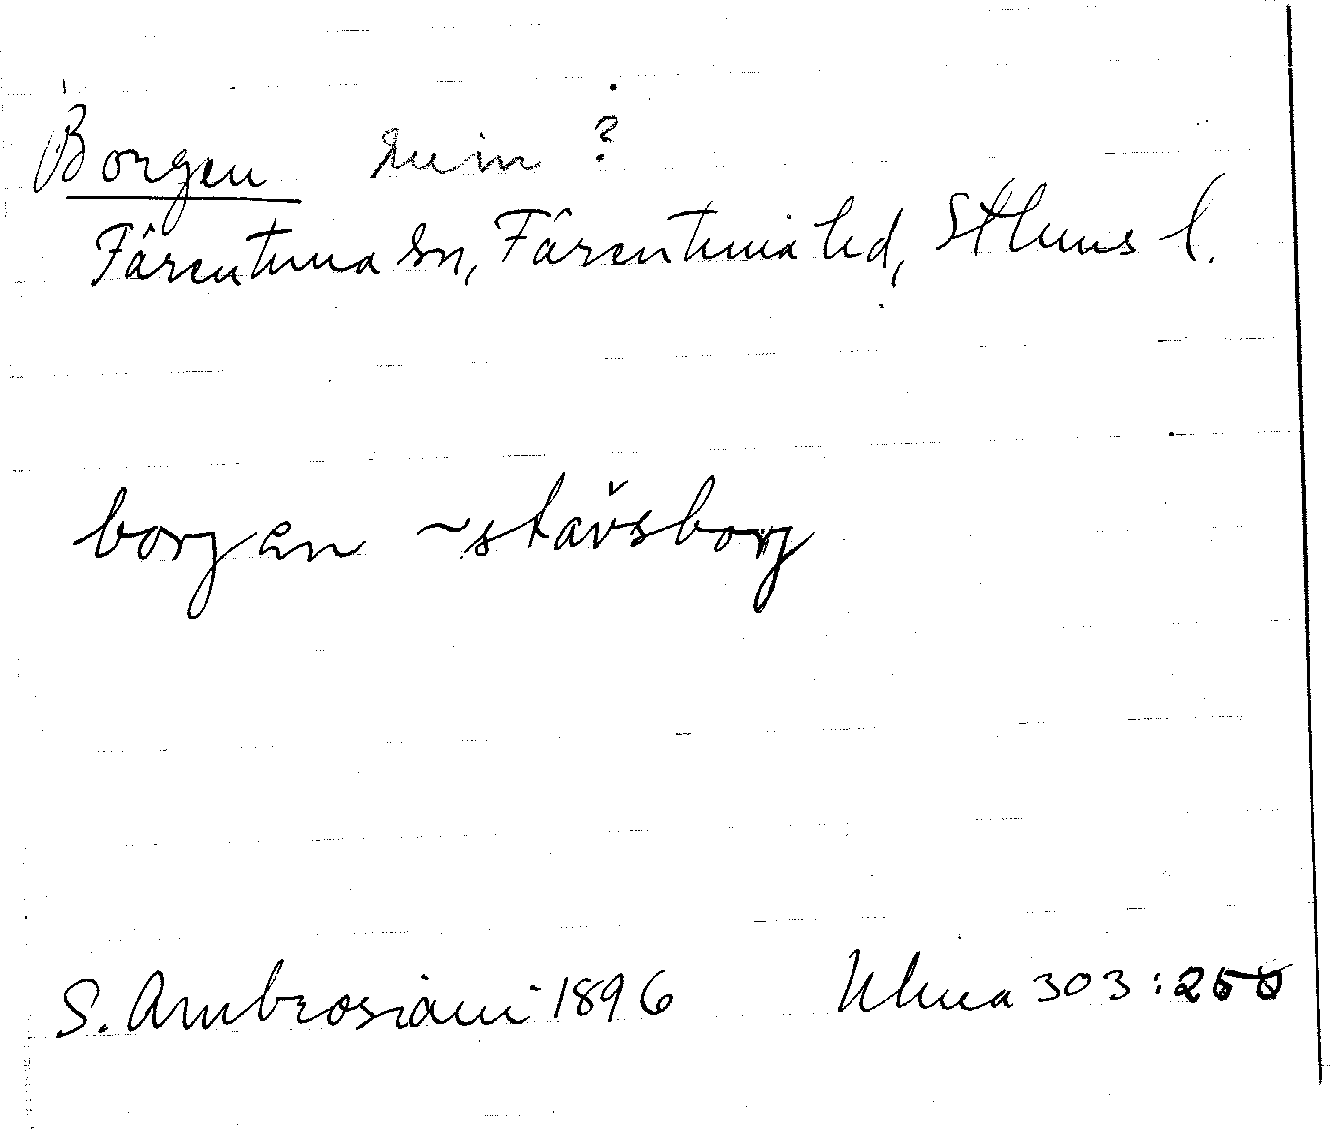 Borgen ruin ?
Färentuna sn, Färentuna hd, Sthms l.
borgen ~ stavsborg
S. Ambrosiani 1896 Ulma 303:250